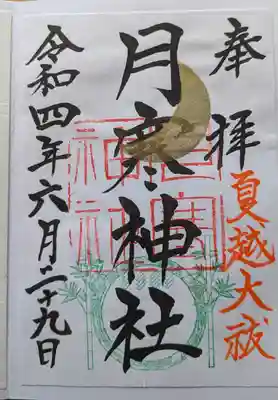 奉拝
夏越大祓
月寒神社
令和四年六月二十九日